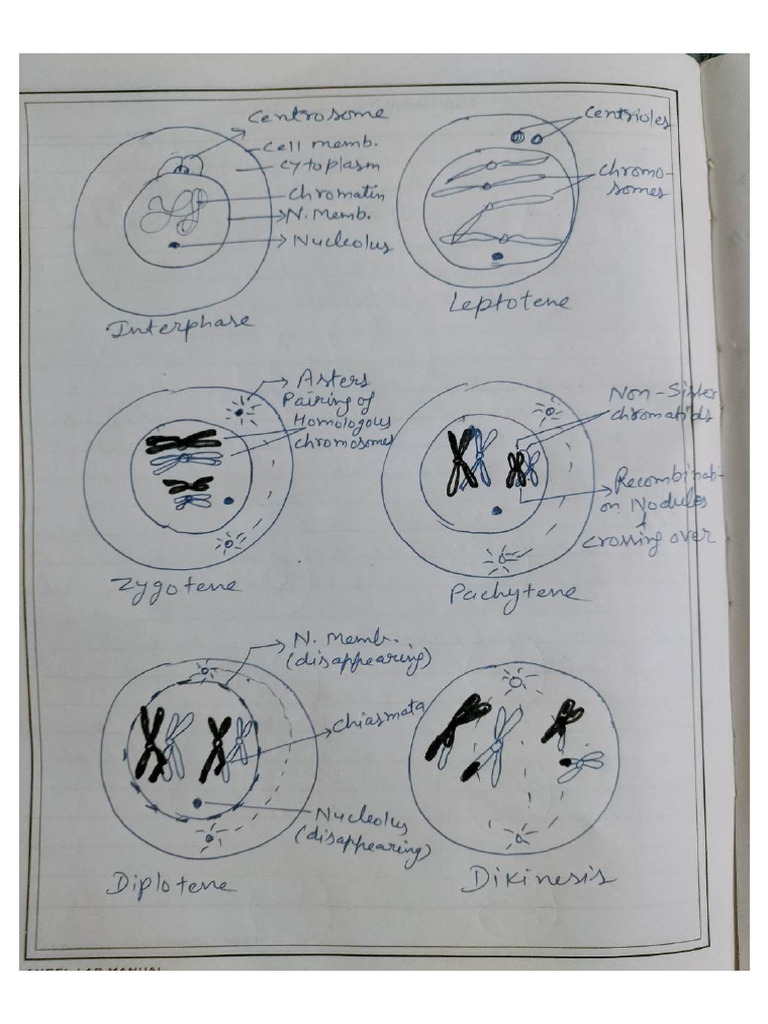 Centrosome
Cell memb.
Cytoplasm
Chromatin
N. Memb.
Nucleolus
Interphase
Centrioles
Chromo-
somes
Leptotene
Asters
Pairing of
Homologous
chromosomes
Zygotene
Non-Sister
chromatids
Recombinati-
on Nodules
&
crossing over
Pachytene
N. Memb.
(disappearing)
Chiasmata
Nucleolus
(disappearing)
Diplotene
Dikinesis